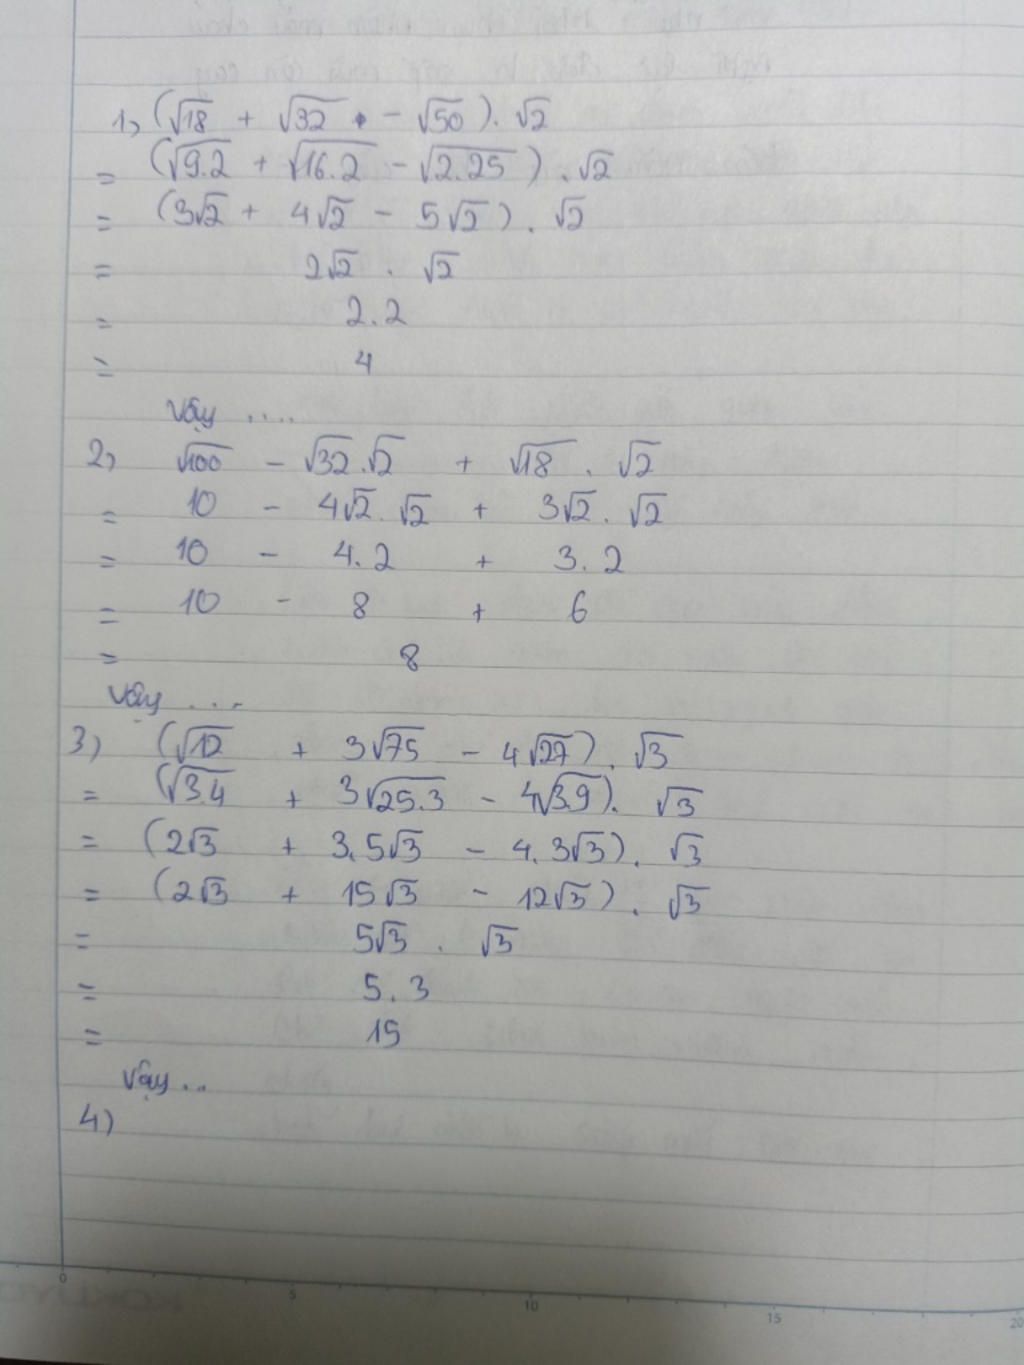 1, (√18 + √32 - √50). √2
= (√9.2 + √16.2 - √2.25) . √2
= (3√2 + 4√2 - 5√2) . √2
= 2√2 . √2
= 2.2
= 4
Vậy ....
2, √100 - √32.√2 + √18 . √2
= 10 - 4√2. √2 + 3√2. √2
= 10 - 4.2 + 3.2
= 10 - 8 + 6
= 8
Vậy ...
3) (√12 + 3√75 - 4√27). √3
= (√3.4 + 3√25.3 - 4√3.9). √3
= (2√3 + 3.5√3 - 4.3√3). √3
= (2√3 + 15√3 - 12√3) . √3
= 5√3 . √3
= 5.3
= 15
Vậy ..
4)
0 5 10 15 20